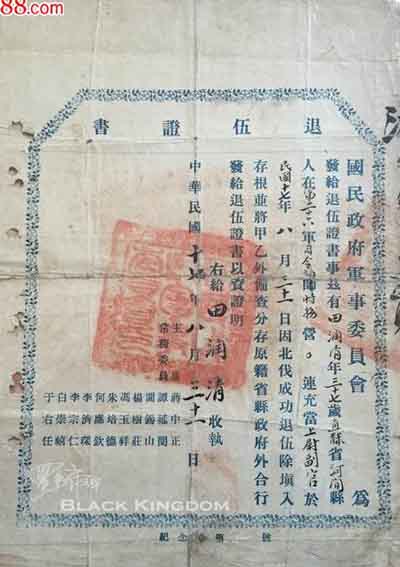 88.com
退伍證書
國民政府軍事委員會 為
發給退伍證書事茲有田潤清年三七歲直隸省河間縣
人在第三十六軍 師特務營 連充當上尉副官於
民國十七年八月三十一日因北伐成功退伍除填入
存根並將甲乙外備查分存原籍省縣政府外合行
發給退伍證書以資證明
右給田潤清收執
中華民國十七年八月三十一日
主席
常務委員
蔣中正
譚延闓
閻錫山
楊樹莊
馮玉祥
朱培德
何應欽
李濟琛
李宗仁
白崇禧
于右任
BLACK KINGDOM
號
紀念